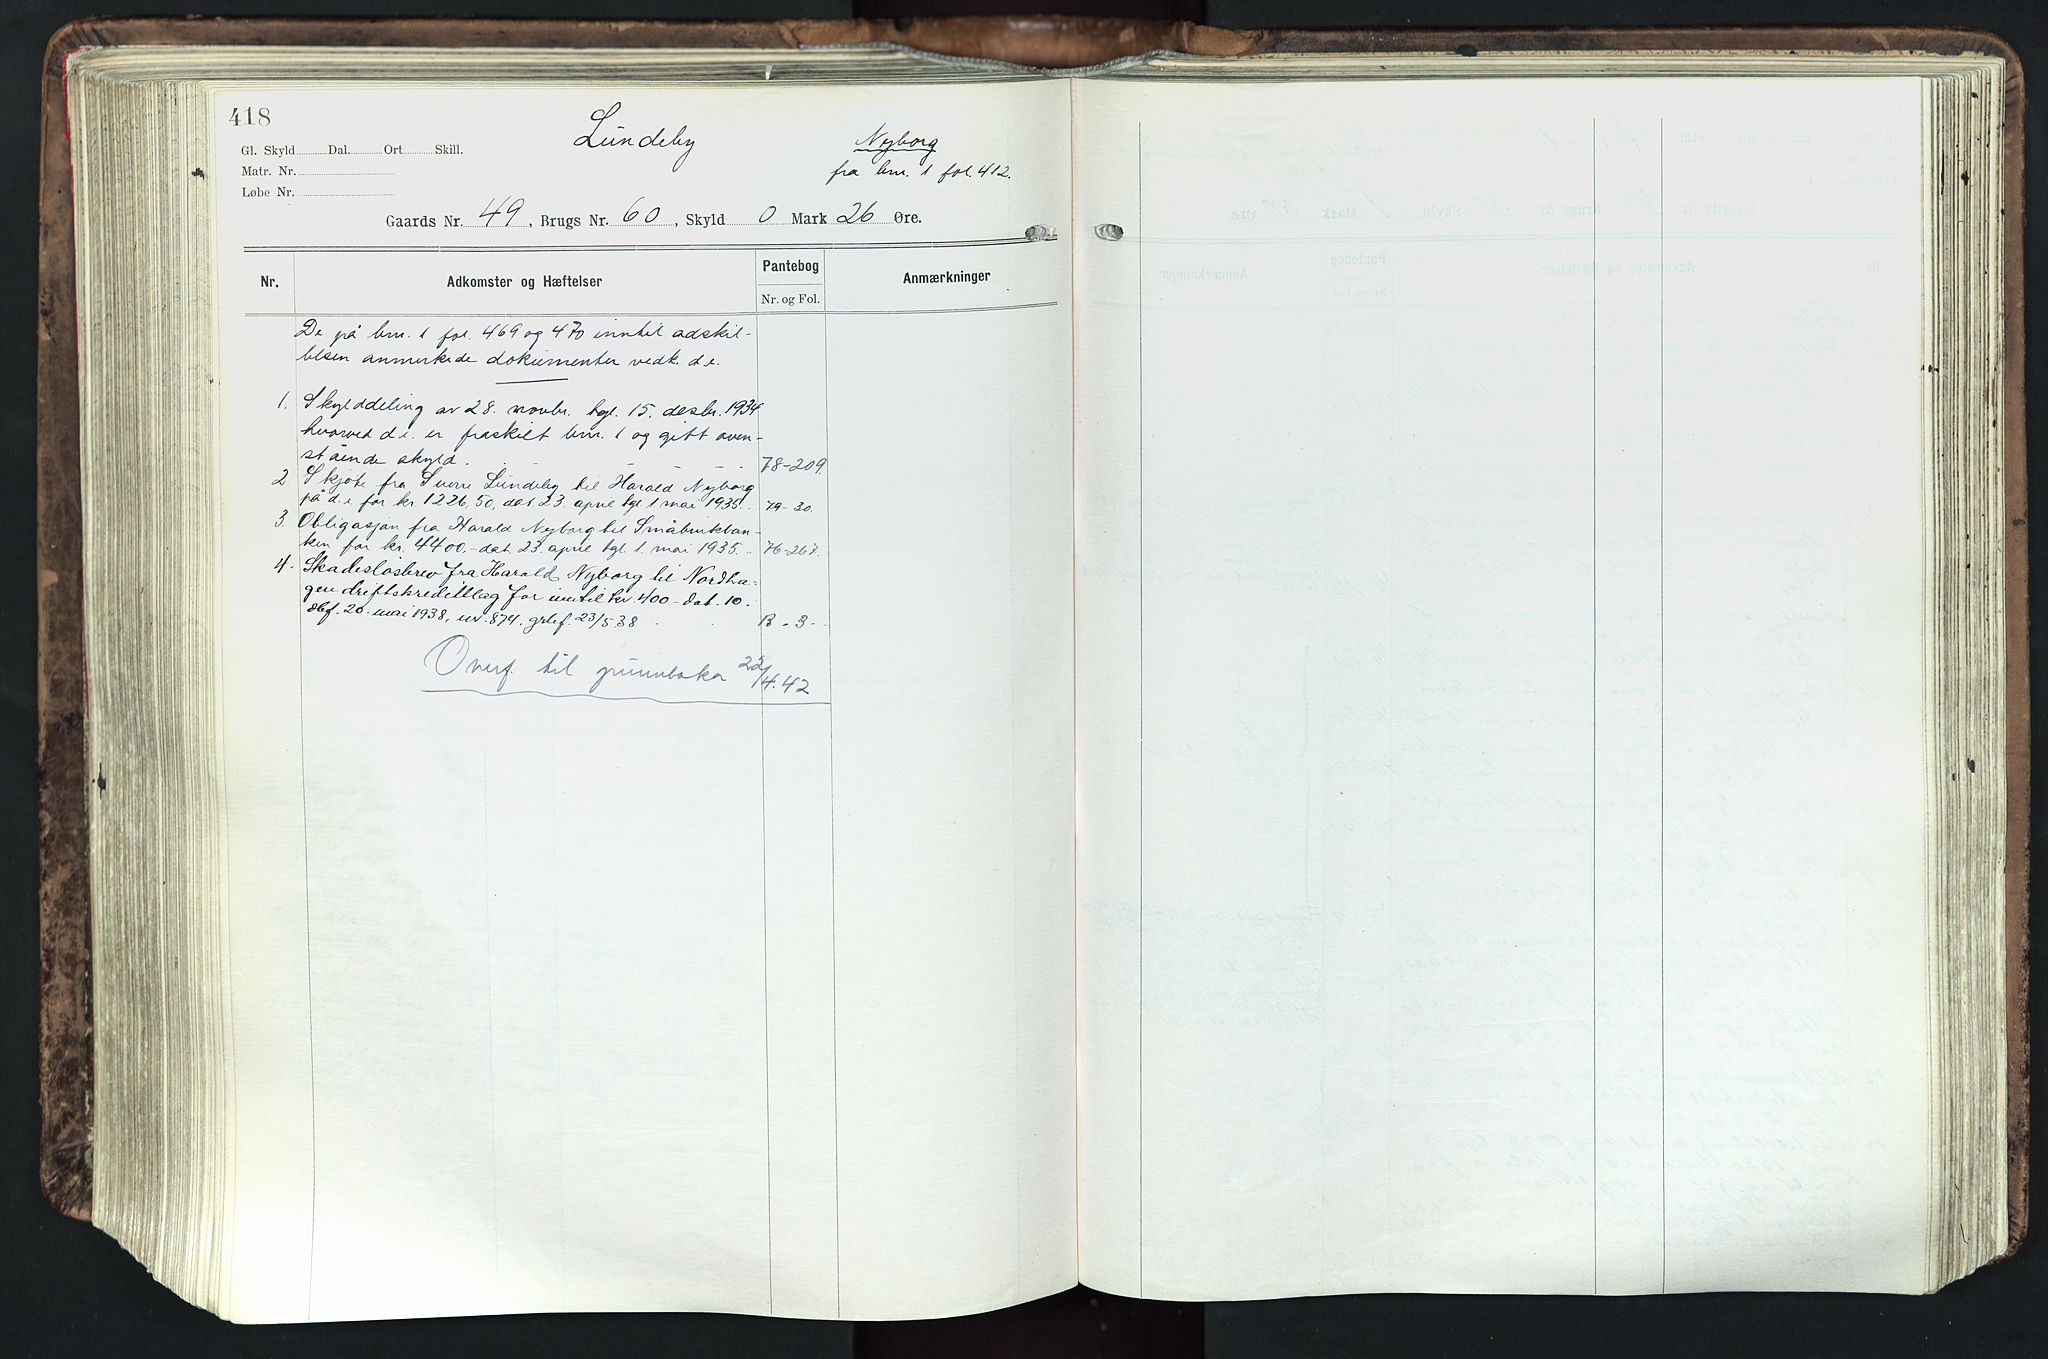 418
Lundeby
Nyborg
Gl. Skyld Dal. Ort Skill.
fra brn. 1 fol. 412.
Matr. Nr.
Løbe Nr.
Gaards Nr. 49, Brugs Nr. 60, Skyld 0 Mark 26 Øre.
Nr. Adkomster og Hæftelser Pantebog Anmærkninger
Nr. og Fol.
De på brn. 1 fol. 469 og 470 inntil adskil-
lelsen anmerkede dokumenter vedk. d.e.
1. Skylddeling av 28. novbr. tgl. 15. desbr. 1934
hvorved d.e. er fraskilt brn. 1 og gitt oven-
stående skyld. 78-209.
2. Skjøte fra Sverre Lundeby til Harald Nyborg
på d.e. for kr. 1226,50, dat. 23. april tgl. 1 mai 1935. 79-30.
3. Obligasjon fra Harald Nyborg til Småbrukban-
ken for kr. 4400,- dat. 23. april tgl. 1. mai 1935. 76-267.
4. Skadesløsbrev fra Harald Nyborg til Nordha-
gen driftskredittlag for inntil kr. 400- dat. 10.
dbf. 20. mai 1938, nr. 874, grbf. 23/5.38 B - 3 -
Overf. til grunnboka 22/4.42